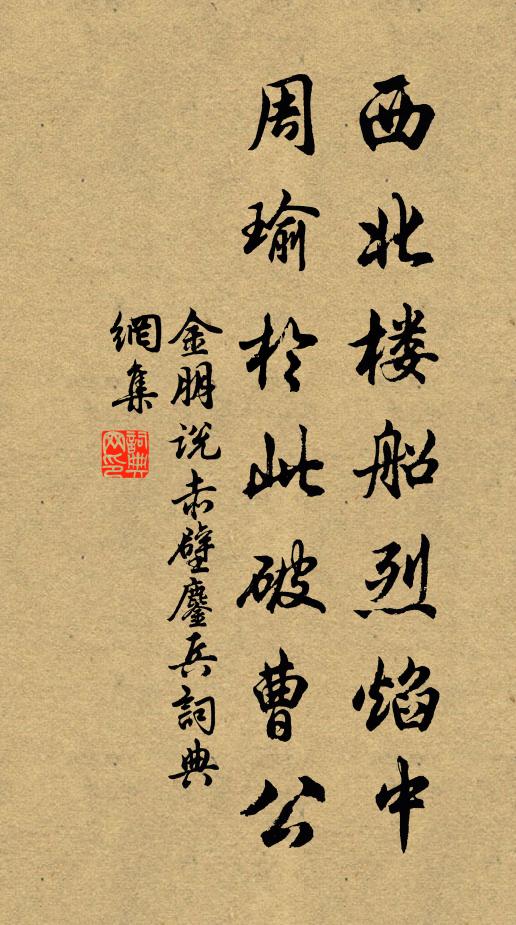 西北楼船烈焰中
周瑜於此破曹公
金朋说赤壁鏖兵詞典
網集
詞典
网印